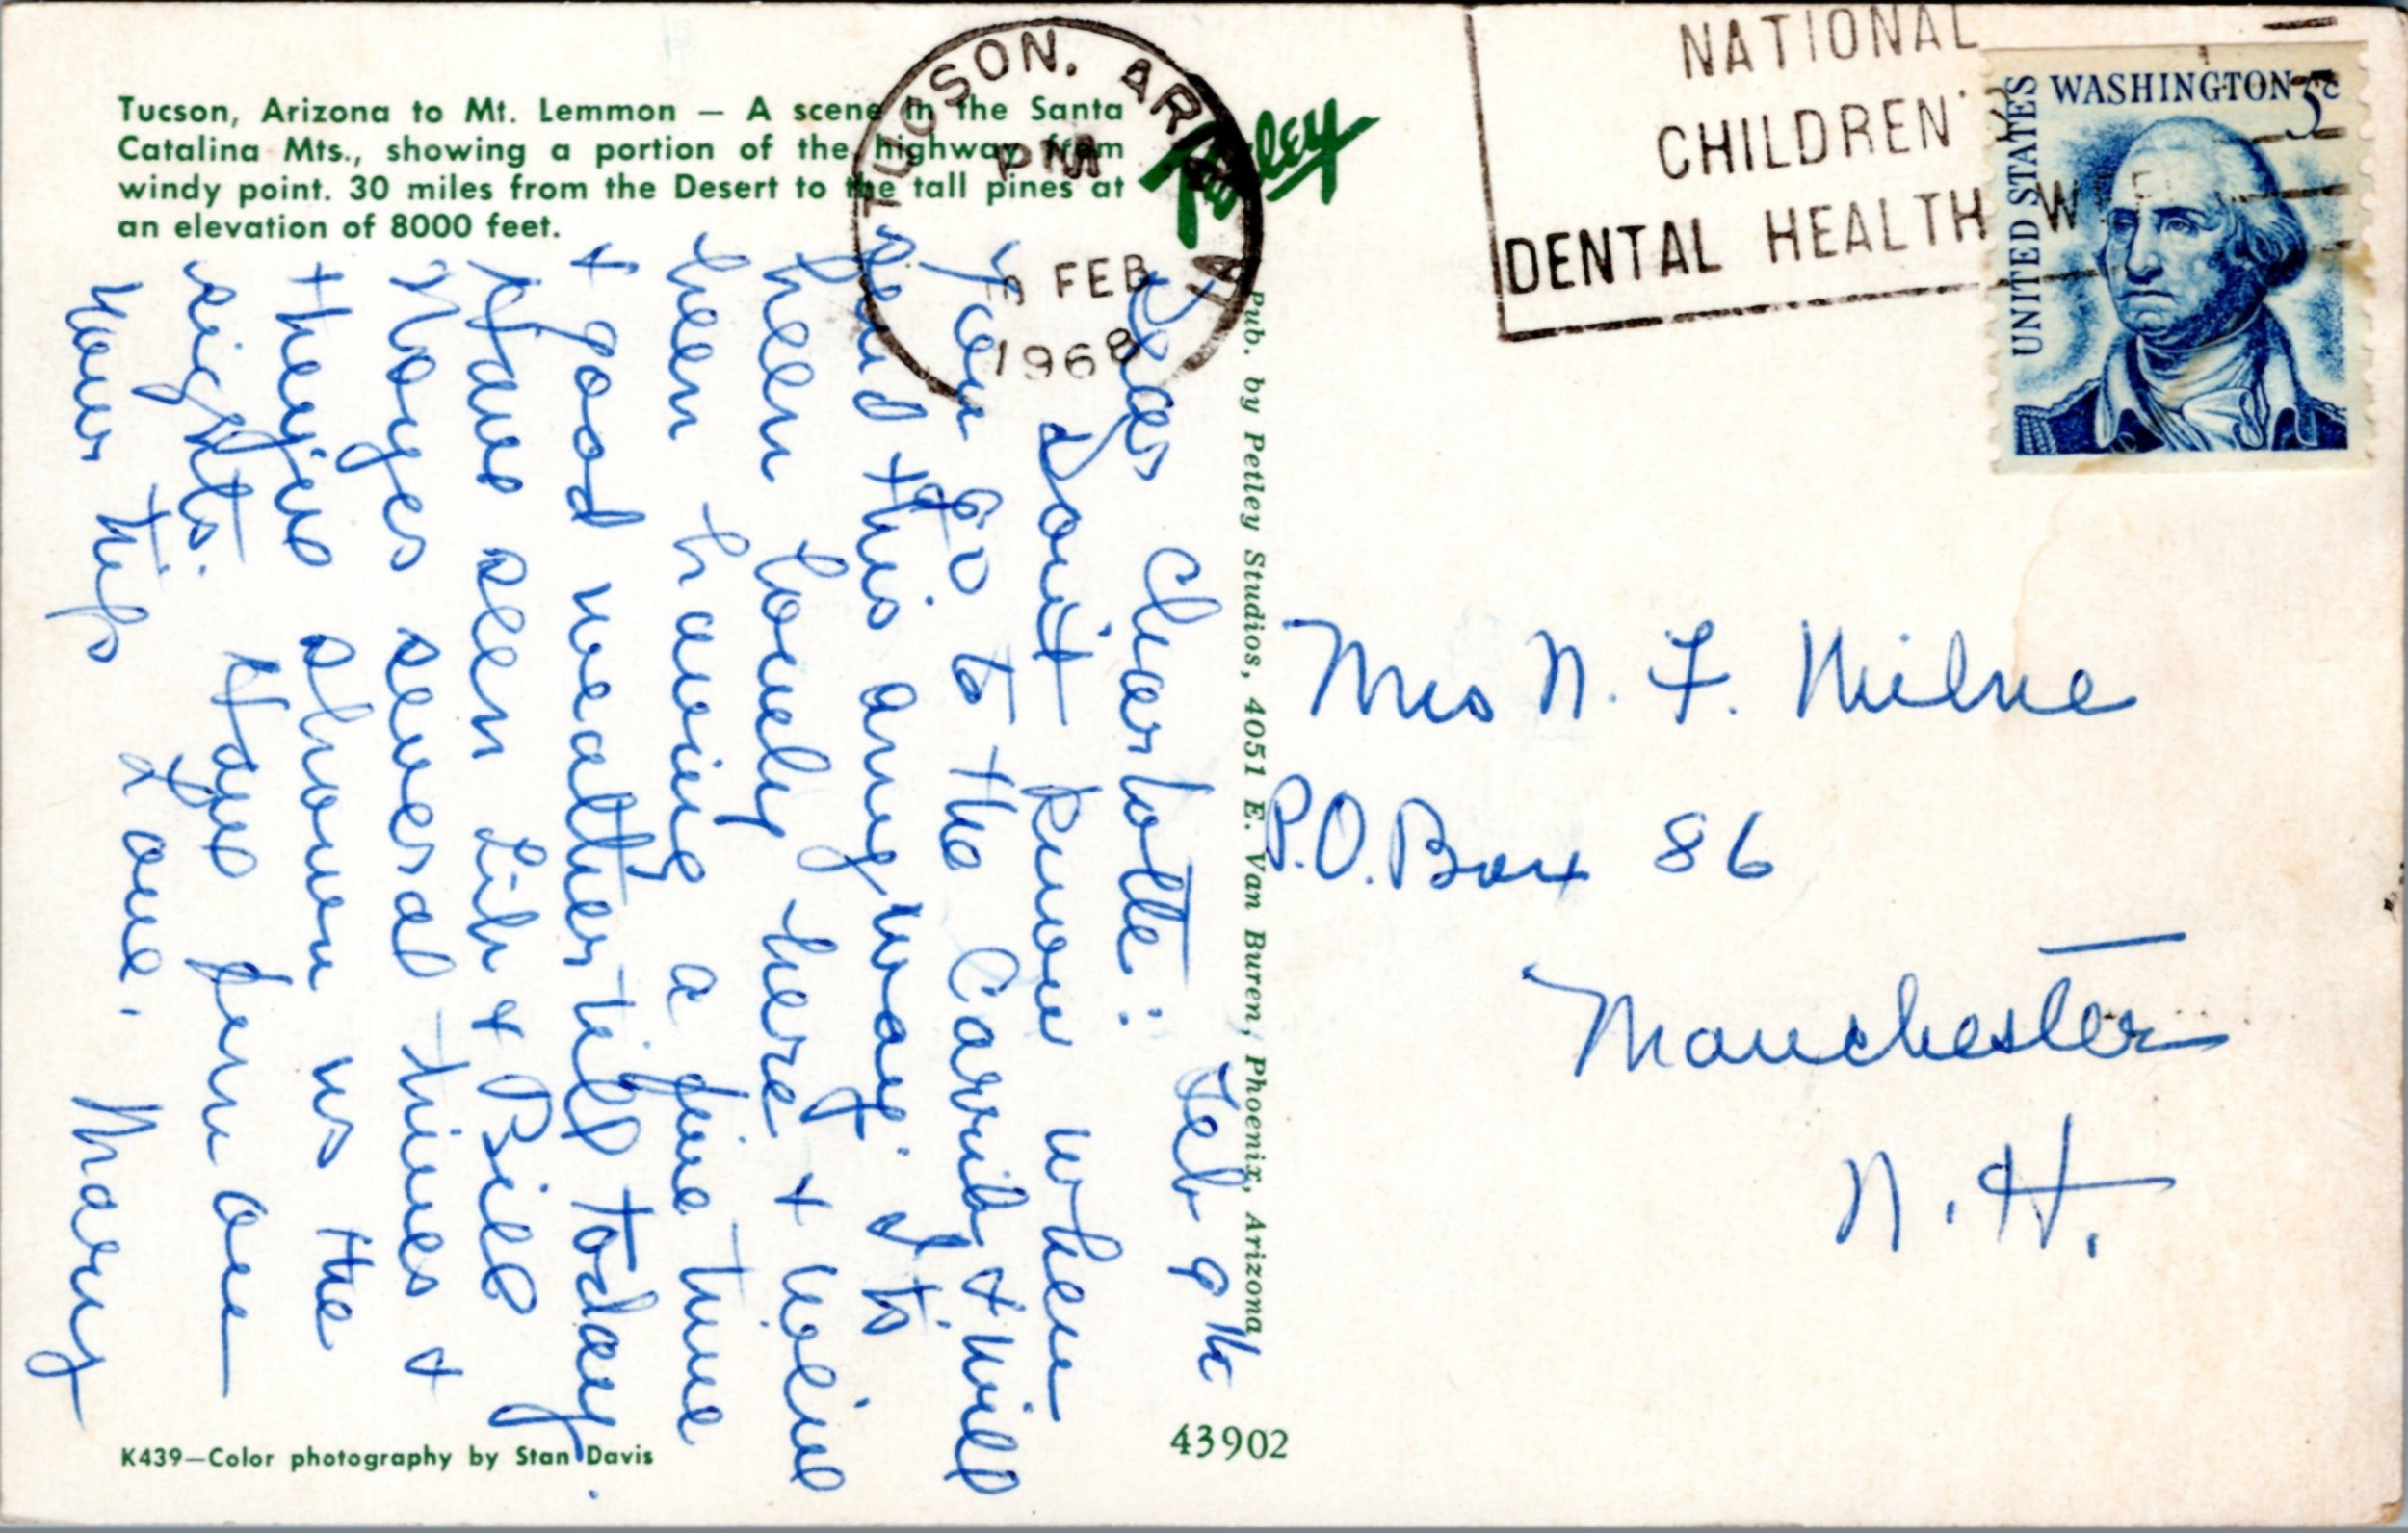 Tucson, Arizona to Mt. Lemmon — A scene in the Santa
Catalina Mts., showing a portion of the highway from
windy point. 30 miles from the Desert to the tall pines at
an elevation of 8000 feet.
Petley
TUCSON, ARIZONA
PM
FEB
1968
NATIONAL
CHILDREN'S
DENTAL HEALTH WEEK
UNITED STATES
WASHINGTON 5c
Feb 9th
Dear Charlotte:
Don't know when
you go to the Carrib & will
send this anyway. It's
been lovely here & we've
been having a fine time
& good weather till today.
Have seen Lib & Bill
Noyes several times &
they've shown us the
sights. Have fun on
your trip
Love. Mary
Pub. by Petley Studios, 4051 E. Van Buren, Phoenix, Arizona
Mrs N. F. Milne
P.O. Box 86
Manchester
N. H.
K439—Color photography by Stan Davis
43902